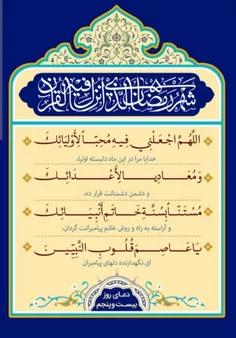 شهر رمضان الذی انزل فیه القرآن
اَللّهُمَّ اجْعَلْنی فیهِ مُحِبّاً لِأَوْلِیائِکَ
خدایا مرا در این ماه دلبسته اولیاء
وَمُعَادِیاً لِأَعْدَائِکَ
و دشمن دشمنانت قرار ده،
مُسْتَنّاً بِسُنَّةِ خَاتَمِ أَنْبِیَائِکَ
و آراسته به راه و روش خاتم پیامبرانت گردان،
یَا عَاصِمَ قُلُوبِ النَّبِیِّینَ
ای نگهدارنده دلهای پیامبران
دعای روز
بیست و پنجم